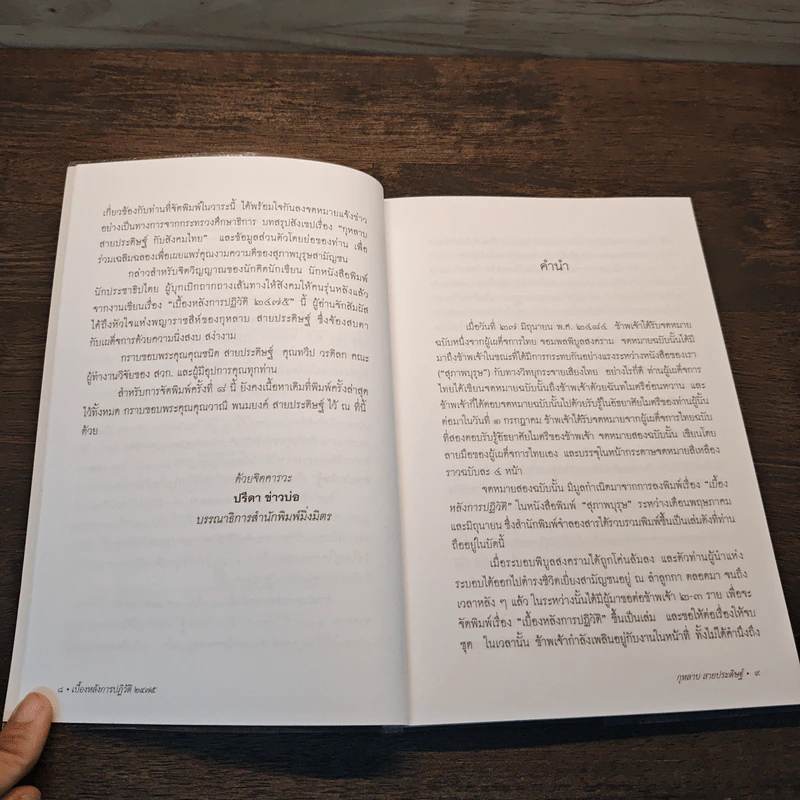 เกี่ยวข้องกับท่านที่จัดพิมพ์ในวาระนี้ ได้พร้อมใจกันลงจดหมายแจ้งข่าว
อย่างเป็นทางการจากกระทรวงศึกษาธิการ บทสรุปสังเขปเรื่อง “กุหลาบ
สายประดิษฐ์ กับสังคมไทย” และข้อมูลส่วนตัวโดยย่อของท่าน เพื่อ
ร่วมเฉลิมฉลองเพื่อเผยแพร่คุณงามความดีของสุภาพบุรุษสามัญชน
กล่าวสำหรับจิตวิญญาณของนักคิดนักเขียน นักหนังสือพิมพ์
นักประชาธิปไตย ผู้บุกเบิกถากถางเส้นทางให้สังคมให้คนรุ่นหลังแล้ว
จากงานเขียนเรื่อง “เบื้องหลังการปฏิวัติ ๒๔๗๕” นี้ ผู้อ่านจักสัมผัส
ได้ถึงหัวใจแห่งพญาราชสีห์ของกุหลาบ สายประดิษฐ์ ซึ่งจ้องสบตา
กับเผด็จการด้วยความนิ่งสงบ สง่างาม
กราบขอบพระคุณคุณชนิด สายประดิษฐ์ คุณทวีป วรดิลก คณะ
ผู้ทำงานวิจัยของ สวก. และผู้มีอุปการคุณทุกท่าน
สำหรับการจัดพิมพ์ครั้งที่ ๘ นี้ ยังคงเนื้อหาเดิมที่พิมพ์ครั้งล่าสุด
ไว้ทั้งหมด กราบขอบพระคุณคุณวาณี พนมยงค์ สายประดิษฐ์ ไว้ ณ ที่นี้
ด้วย
ด้วยจิตคารวะ
ปรีดา ข่าวบ่อ
บรรณาธิการสำนักพิมพ์มิ่งมิตร
๘ • เบื้องหลังการปฏิวัติ ๒๔๗๕
คำนำ
เมื่อวันที่ ๒๗ มิถุนายน พ.ศ. ๒๔๘๔ ข้าพเจ้าได้รับจดหมาย
ฉบับหนึ่งจากผู้เผด็จการไทย จอมพลพิบูลสงคราม จดหมายฉบับนั้นได้มี
มาถึงข้าพเจ้าในขณะที่ได้มีการกระทบกันอย่างแรงระหว่างหนังสือของเรา
(“สุภาพบุรุษ”) กับทางวิทยุกระจายเสียงไทย อย่างไรก็ดี ท่านผู้เผด็จการ
ไทยได้เขียนจดหมายฉบับนั้นถึงข้าพเจ้าด้วยฉันทไมตรีอ่อนหวาน และ
ข้าพเจ้าก็ได้ตอบจดหมายฉบับนั้นไปด้วยรับรู้ในอัธยาศัยไมตรีของท่านผู้นั้น
ต่อมาในวันที่ ๑ กรกฎาคม ข้าพเจ้าได้รับจดหมายจากผู้เผด็จการไทยฉบับ
ที่สองตอบรับรู้อัธยาศัยไมตรีของข้าพเจ้า จดหมายสองฉบับนั้น เขียนโดย
ลายมือของผู้เผด็จการไทยเอง และบรรจุในหน้ากระดาษจดหมายสีเหลือง
ราวฉบับละ ๔ หน้า
จดหมายสองฉบับนั้น มีมูลกำเนิดมาจากการลงพิมพ์เรื่อง “เบื้อง
หลังการปฏิวัติ” ในหนังสือพิมพ์ “สุภาพบุรุษ” ระหว่างเดือนพฤษภาคม
และมิถุนายน ซึ่งสำนักพิมพ์จำลองสารได้รวบรวมพิมพ์ขึ้นเป็นเล่มดังที่ท่าน
ถืออยู่ในบัดนี้
เมื่อระบอบพิบูลสงครามได้ถูกโค่นล้มลง และตัวท่านผู้นำแห่ง
ระบอบได้ออกไปดำรงชีวิตเยี่ยงสามัญชนอยู่ ณ ลำลูกกา ตลอดมา จนถึง
เวลาหลัง ๆ แล้ว ในระหว่างนั้นได้มีผู้มาขอต่อข้าพเจ้า ๒-๓ ราย เพื่อจะ
จัดพิมพ์เรื่อง “เบื้องหลังการปฏิวัติ” ขึ้นเป็นเล่ม และขอให้ต่อเรื่องให้จบ
ชุด ในเวลานั้น ข้าพเจ้ากำลังเพลินอยู่กับงานในหน้าที่ ทั้งไม่ได้คำนึงถึง
กุหลาบ สายประดิษฐ์ • ๙